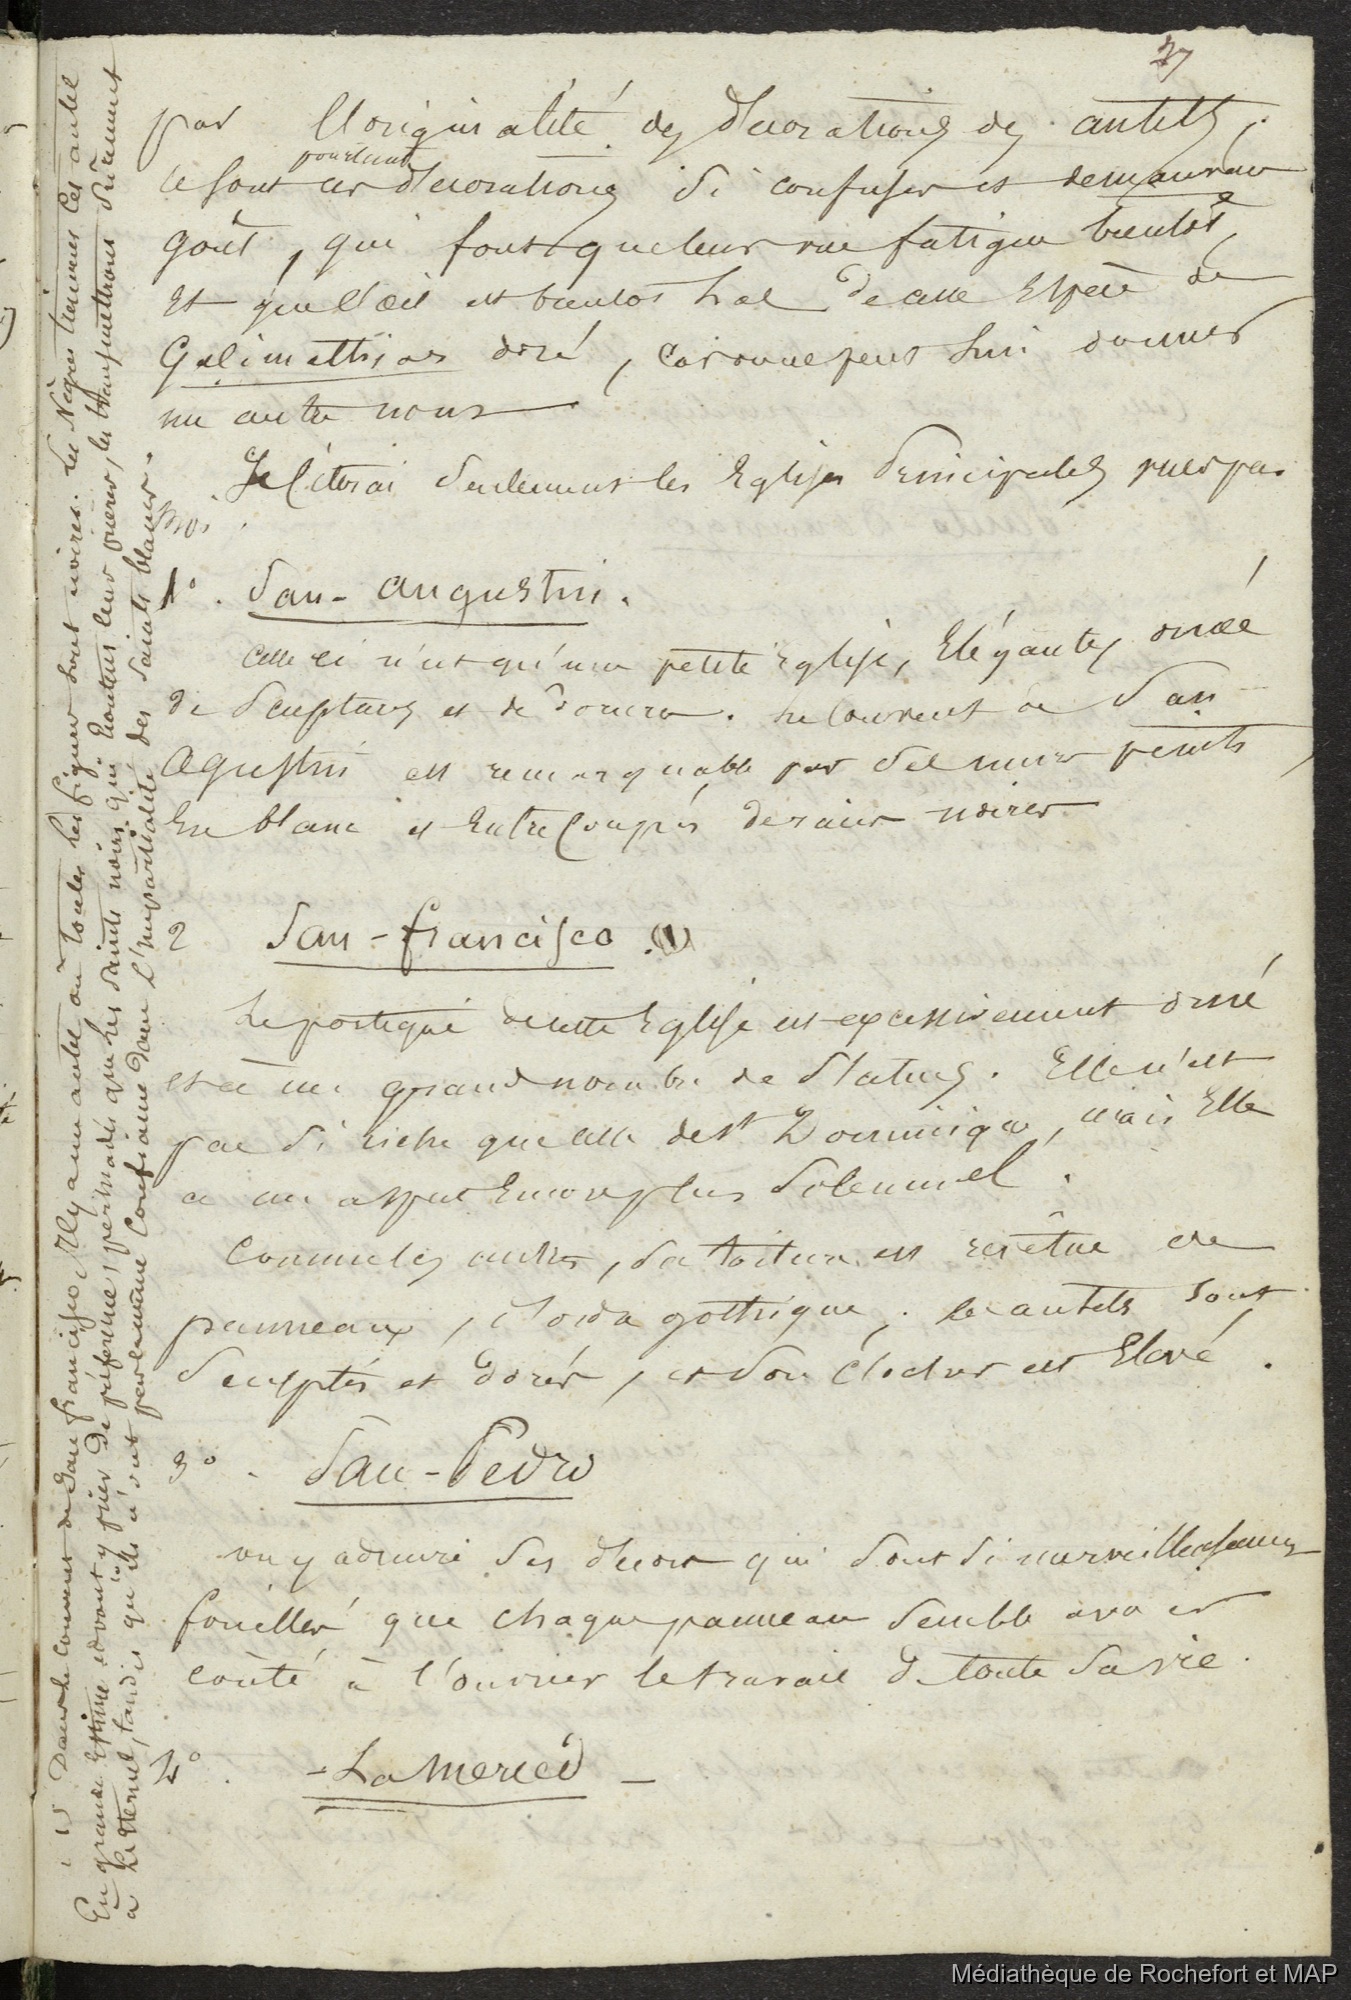 27
par l'originalité des décorations des autels,
pourtant
ce sont ces décorations si confuses et de mauvais
goût, qui font que leur vue fatigue bientôt,
et que l'œil est bientôt las de cette espèce de
Galimathias doré, car on ne peut lui donner
un autre nom
Je citerai seulement les Eglises principales vues par
moi.
1° . San-Augustin.
Celle ci n'est qu'une petite Eglise, Elégante, ornée
de Sculptures et de dorures. Le couvent de San
Agustin est remarquable par ses murs peints
En blanc et Entrecoupés de raies noires
2 San-francisco .(1)
Le portique de cette Eglise est excessivement orné
et a un grand nombre de Statues. Elle n'est
pas si riche que celle de St Dominique, mais Elle
a un aspect Encore plus Solennel.
Comme les autres, sa toiture est revêtue de
panneaux, d'ordre gothique, les autels sont
Sculptés et dorés, et son clocher est Elevé.
3° . San-Pedro
on y admire ses décors qui sont si merveilleusement
fouillés que chaque panneau semble avoir
coûté à l'ouvrier le travail de toute sa vie.
4° . - La Merced -
(1) Dans le Couvent de San francisco, Il y a un autel où toutes les figures sont noires. Les Nègres tiennent cet autel
En grande Estime et vont y prier de préférence, persuadés que les saints noirs, qui Ecoutent leur prières, les transmettront sûrement
à L'Eternel, tandis qu'ils n'ont pas la même Confiance dans l'impartialité des Saints blancs.
Médiathèque de Rochefort et MAP